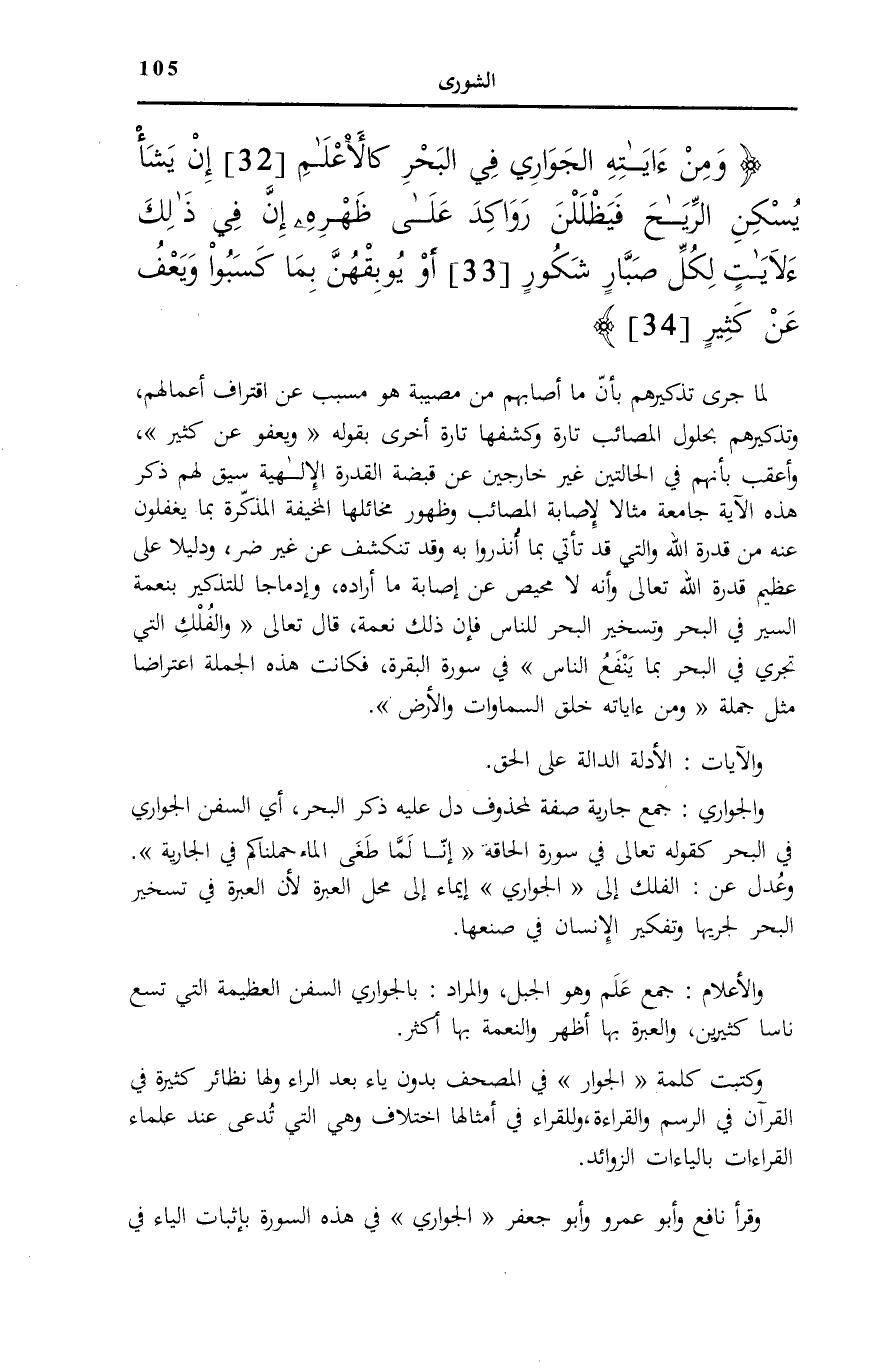 105
الشورى
﴿ وَمِنْ ءَايَـٰتِهِ الجَوَارِي فِي البَحْرِ كَالْأَعْلَـٰمِ [32] إِنْ يَشَأْ
يُسْكِنِ الرِّيَـٰحَ فَيَظْلَلْنَ رَوَاكِدَ عَلَـىٰ ظَهْرِهِۦ إِنَّ فِي ذَٰلِكَ
ءَلَأَيَـٰتٍ لِكُلِّ صَبَّارٍ شَكُورٍ [33] أَوْ يُوبِقْهُنَّ بِمَا كَسَبُواْ وَيَعْفُ
عَنْ كَثِيرٍ [34] ﴾
لما جرى تذكيرهم بأنّ ما أصابهم من مصيبة هو مسبب عن اقتراف أعمالهم،
وتذكيرهم بحلول المصائب تارة وكشفها تارة أخرى بقوله « ويعفو عن كثير »،
وأعقب بأنهم في الحالتين غير خارجين عن قبضة القدرة الإلـٰهية سيق لهم ذكر
هذه الآية جامعة مثالا لإصابة المصائب وظهور مخائلها المخيفة المذكّرة بما يغفلون
عنه من قدرة الله والتي قد تأتي بما أُنذروا به وقد تنكشف عن غير ضر، ودليلا على
عظيم قدرة الله تعالى وأنه لا محيص عن إصابة ما أراده، وإدماجا للتذكير بنعمة
السير في البحر وتسخير البحر للناس فإن ذلك نعمة، قال تعالى « والفُلْكِ التي
تجري في البحر بما يَنْفَعُ الناس » في سورة البقرة، فكانت هذه الجملة اعتراضا
مثل جملة « ومن ءاياته خلق السماوات والأرض ».
والآيات : الأدلة الدالة على الحق.
والجواري : جمع جارية صفة لمحذوف دل عليه ذكر البحر، أي السفن الجواري
في البحر كقوله تعالى في سورة الحاقة « إنّـا لَمَّا طَغَى الماء حملناكم في الجارية ».
وعُدل عن : الفلك إلى « الجواري » إيماء إلى محل العبرة لأن العبرة في تسخير
البحر لجريها وتفكير الإنسان في صنعها.
والأعلام : جمع عَلَم وهو الجبل، والمراد : بالجواري السفن العظيمة التي تسع
ناسا كثيرين، والعبرة بها أظهر والنعمة بها أكثر.
وكتبت كلمة « الجوار » في المصحف بدون ياء بعد الراء ولها نظائر كثيرة في
القرآن في الرسم والقراءة، وللقراء في أمثالها اختلاف وهي التي تُدعى عند علماء
القراءات بالياءات الزوائد.
وقرأ نافع وأبو عمرو وأبو جعفر « الجواري » في هذه السورة بإثبات الياء في